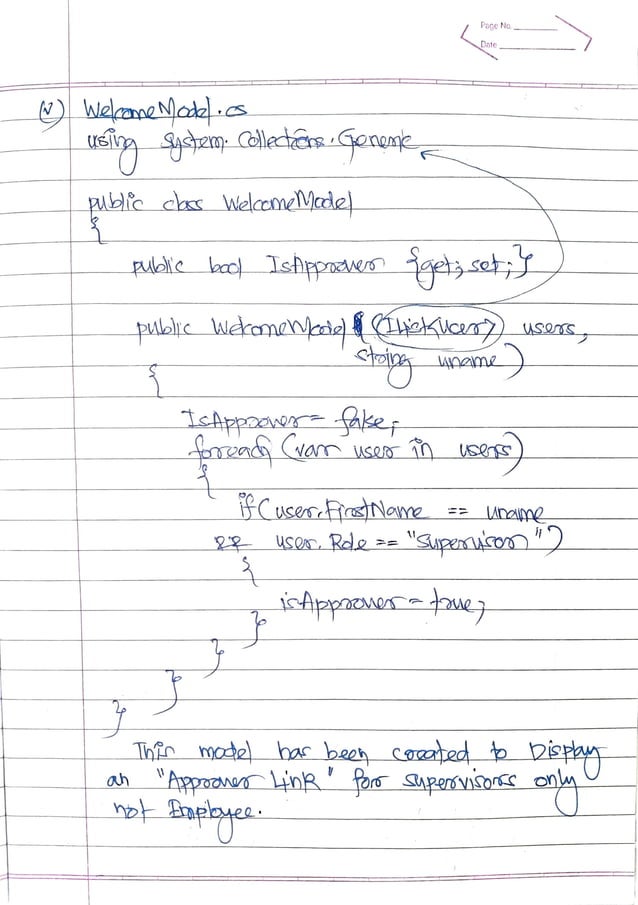 Page No.
Date
(v) WelcomeModel.cs
using System.Collections.Generic
public class WelcomeModel
{
public bool IsApprover {get; set;}
public WelcomeModel (IList<User> users,
string uname)
{
IsApprover = false;
foreach (var user in users)
{
if (user.FirstName == uname
&& user.Role == "Supervisor")
{
isApprover = true;
}
}
}
}
This model has been created to Display
an "Approver Link" for supervisors only
not Employee.